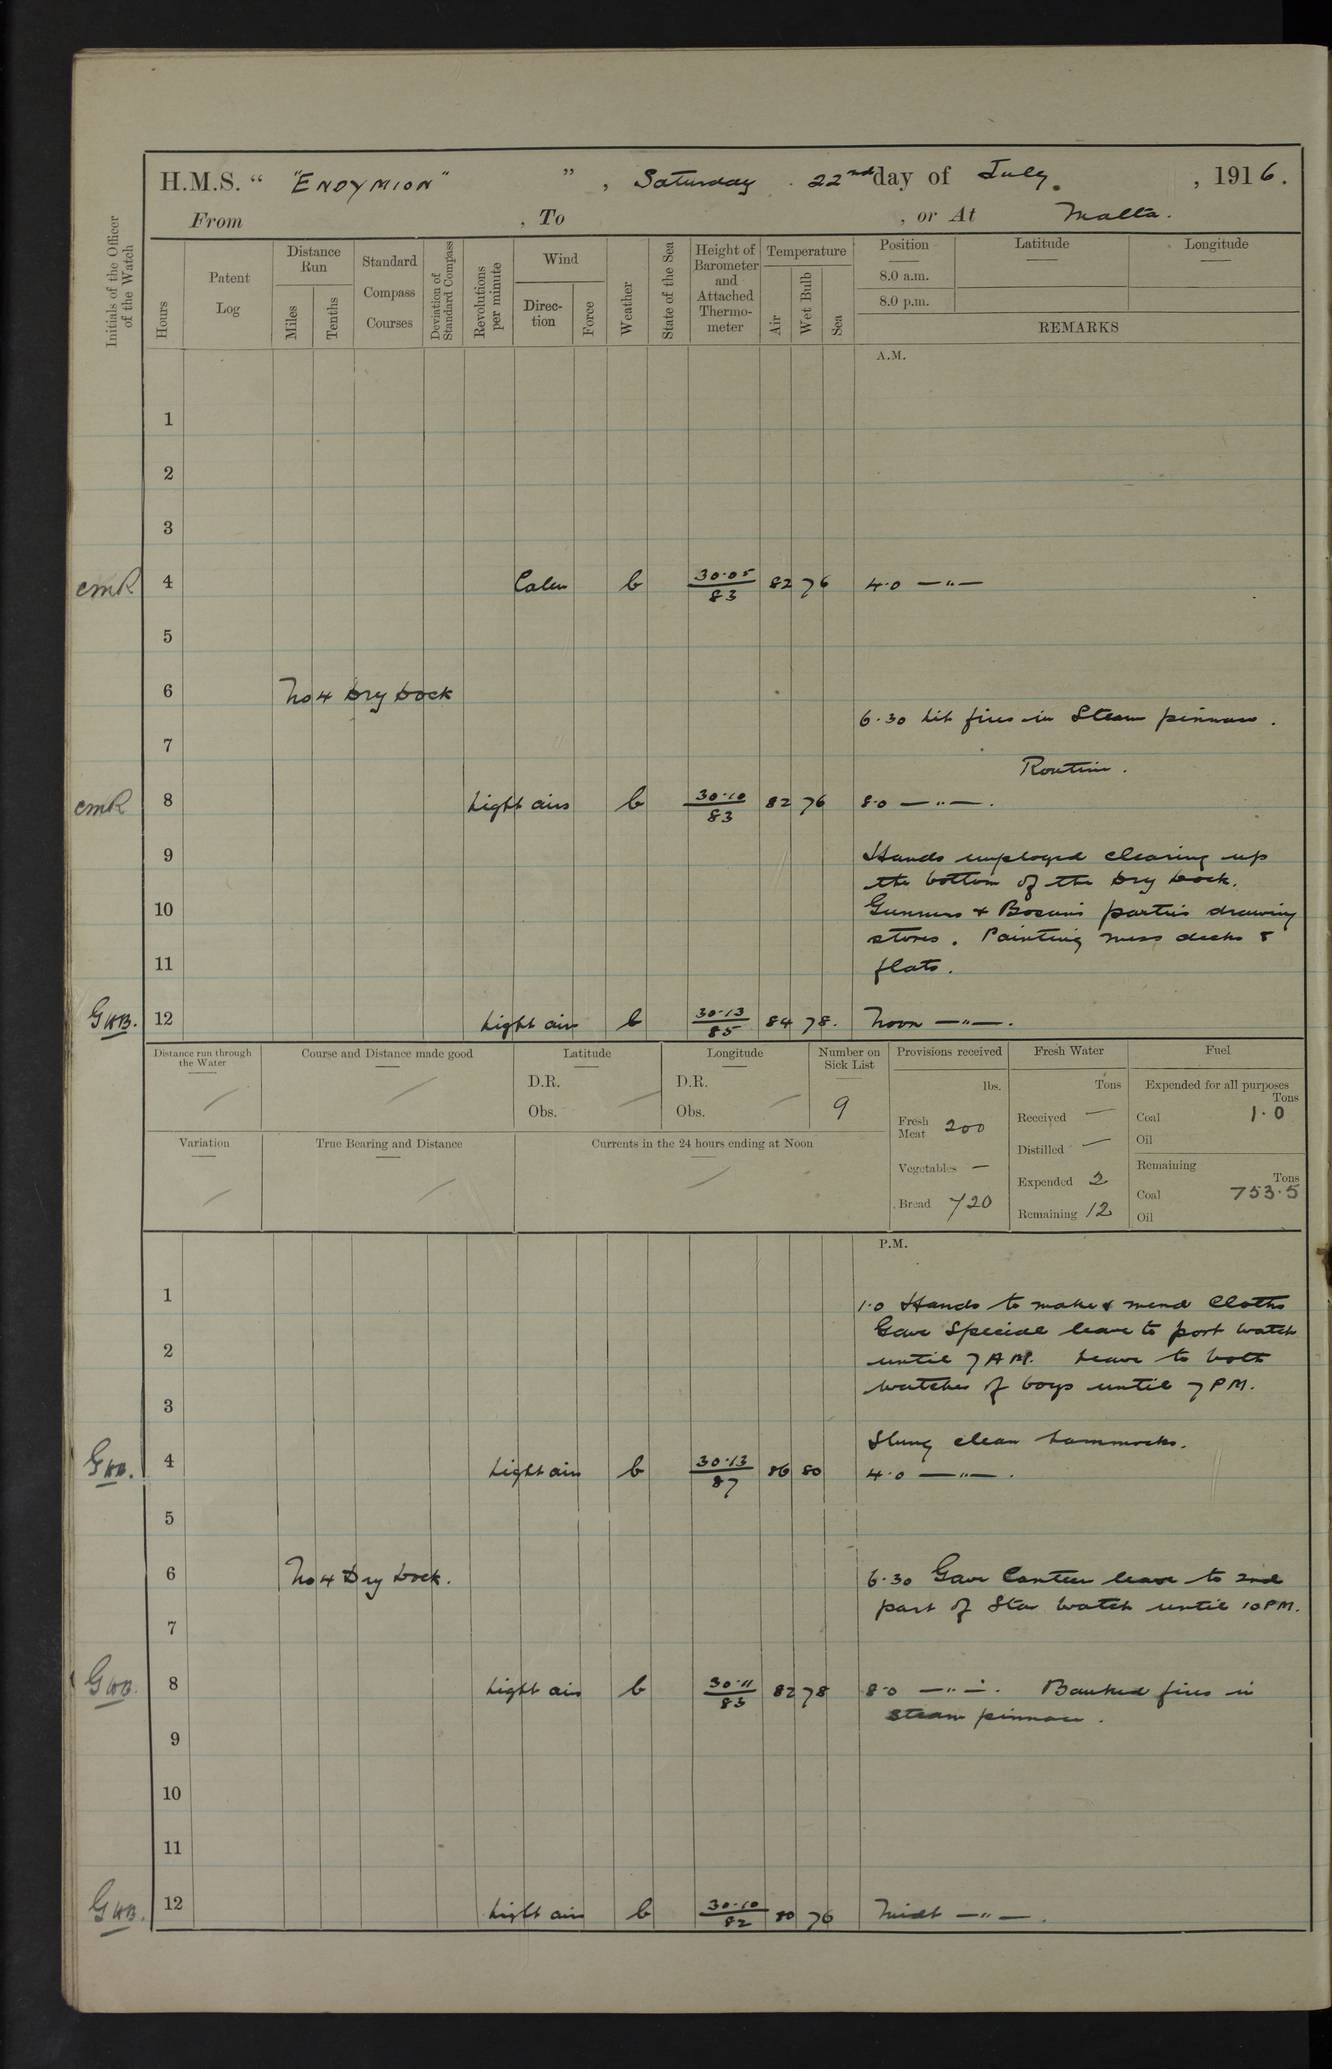 H.M.S. " "ENDYMION" ", Saturday 22nd day of July, 1916.
From , To , or At Malta.
Initials of the Officer of the Watch
Hours
Patent Log
Distance Run
Miles
Tenths
Standard Compass Courses
Deviation of Standard Compass
Revolutions per minute
Wind
Direc-tion
Force
Weather
State of the Sea
Height of Barometer and Attached Thermo-meter
Temperature
Air
Wet Bulb
Sea
Position
Latitude
Longitude
8.0 a.m.
8.0 p.m.
REMARKS
A.M.
1
2
3
cmR 4 Calm b 30.05/83 82 76 4.0 —"—
5
6 No 4 Dry Dock
6.30 Lit fires in Steam pinnace.
7
Routine.
cmR 8 Light airs b 30.10/83 82 76 8.0 —"—.
9 Hands employed clearing up
the bottom of the Dry Dock.
10 Gunners & Bosuns parties drawing
stores. Painting mess decks &
11 flats.
GWB. 12 Light airs b 30.13/85 84 78. Noon —"—.
Distance run through the Water
Course and Distance made good
Latitude
D.R.
Obs.
Longitude
D.R.
Obs.
Number on Sick List
9
Provisions received
lbs.
Fresh Meat 200
Vegetables —
Bread 720
Fresh Water
Tons
Received —
Distilled —
Expended 2
Remaining 12
Fuel
Expended for all purposes
Tons
Coal 1.0
Oil
Remaining
Tons
Coal 753.5
Oil
Variation
True Bearing and Distance
Currents in the 24 hours ending at Noon
P.M.
1 1.0 Hands to make & mend Cloths
Gave Special leave to port watch
2 until 7 AM. Leave to both
watches of boys until 7 PM.
3
Slung clean hammocks.
GWB. 4 Light airs b 30.13/87 86 80 4.0 —"—.
5
6 No 4 Dry Dock. 6.30 Gave Canteen leave to 2nd
part of Sta watch until 10 PM.
7
GWB. 8 Light airs b 30.11/83 82 78 8.0 —"—. Banked fires in
steam pinnace.
9
10
11
GWB. 12 Light airs b 30.10/82 80 76 Midt —"—.